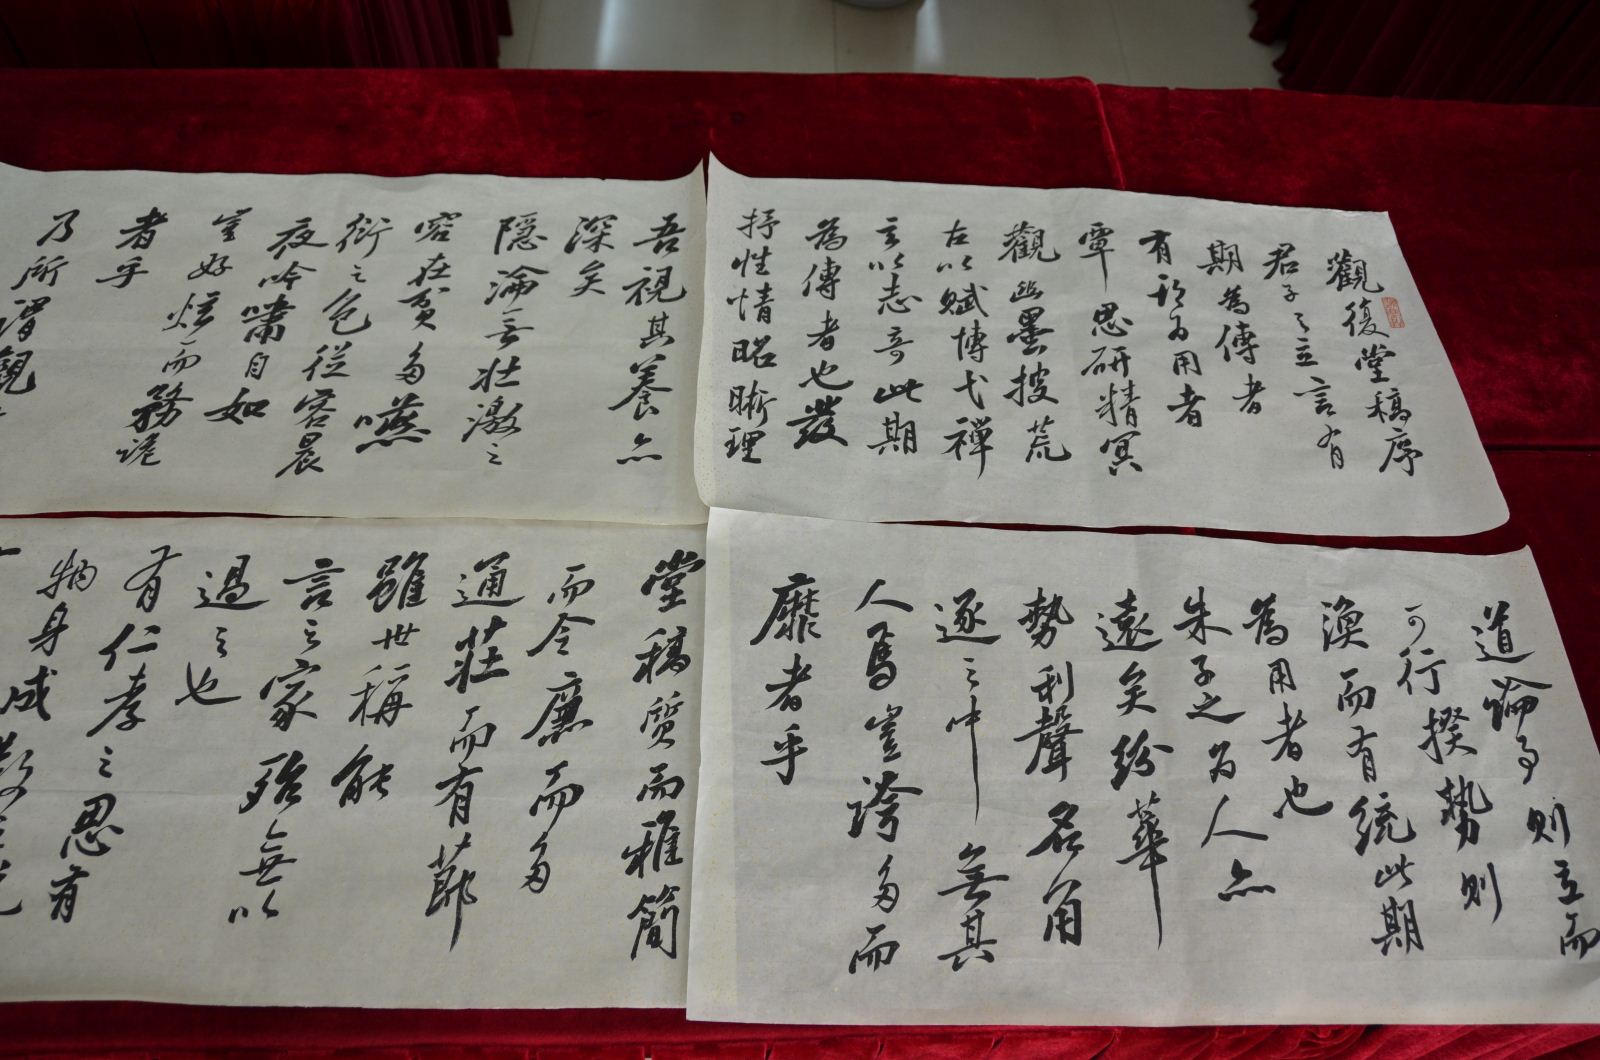 觀復堂稿序
君子之立言有
期為傳者
有期為用者
覃思研精冥
觀幽墨搜荒
左以賦博弋禪
玄以志奇此期
為傳者也發
抒性情昭晰理
道論事則立而
可行揆勢則
渙而有統此期
為用者也
朱子之为人亦
遠矣紛華
勢利聲名角
逐之中無其
人焉豈誇多而
靡者乎
吾視其養亦
深矣
隱淪無壯激之
容在貧多嚥
衎之色從容晨
夜吟嘯自如
豈好炫而務詭
者乎
乃所謂觀
堂稿質而雅簡
而令廉而多
通莊而有節
雖世稱能
言之家殆無以
過之也
有仁孝之思有
物身成